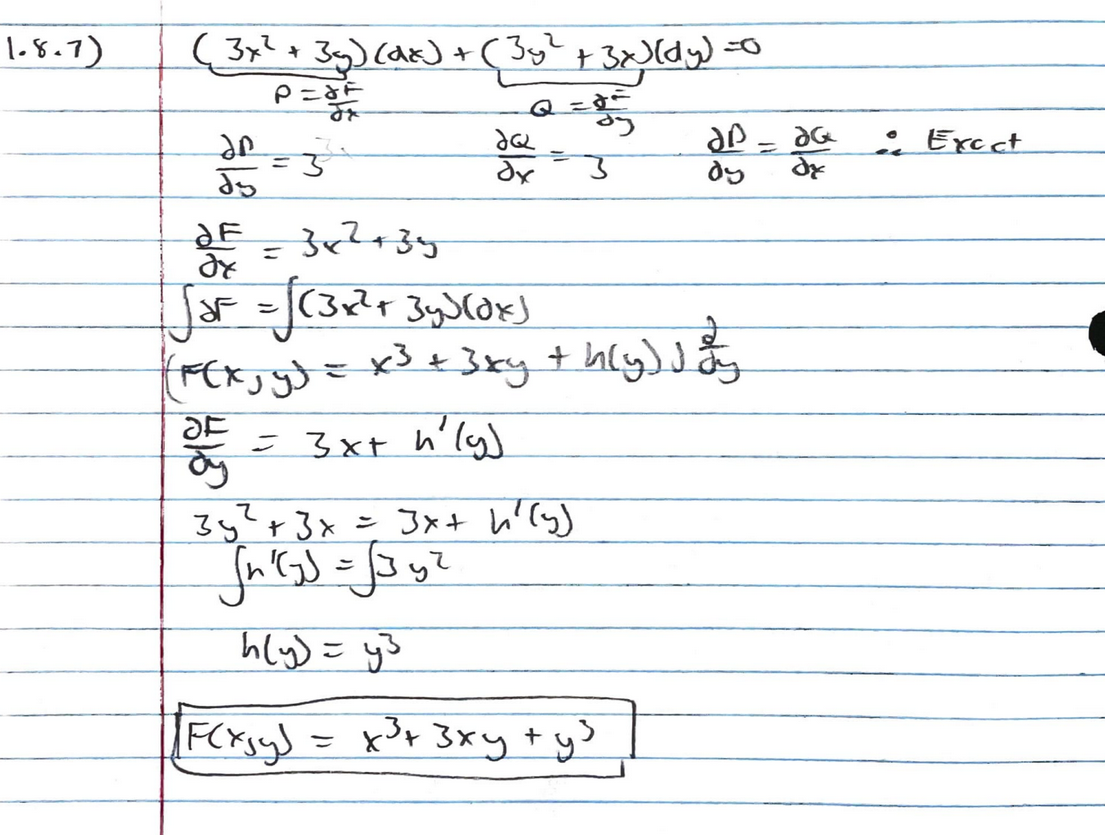 1.8.7) (3x² + 3y)(dx) + (3y² + 3x)(dy) = 0
P = ∂F/∂x Q = ∂F/∂y
∂P/∂y = 3 ∂Q/∂x = 3 ∂P/∂y = ∂Q/∂x ∴ Exact
∂F/∂x = 3x² + 3y
∫∂F = ∫(3x² + 3y)(∂x)
(F(x,y) = x³ + 3xy + h(y)) ∂/∂y
∂F/∂y = 3x + h'(y)
3y² + 3x = 3x + h'(y)
∫h'(y) = ∫3y²
h(y) = y³
F(x,y) = x³ + 3xy + y³